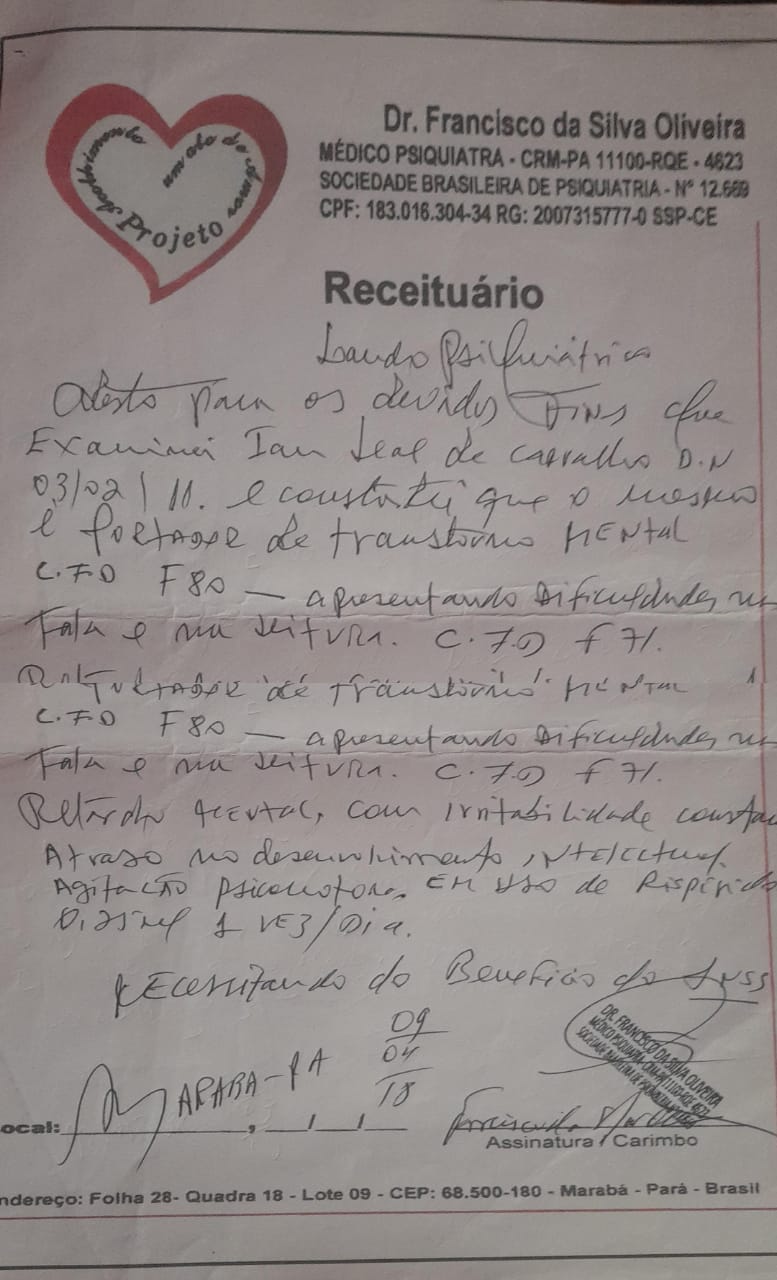 Projeto
um ato de amor
Dr. Francisco da Silva Oliveira
MÉDICO PSIQUIATRA - CRM-PA 11100-RQE - 4623
SOCIEDADE BRASILEIRA DE PSIQUIATRIA - Nº 12.669
CPF: 183.016.304-34 RG: 2007315777-0 SSP-CE
Receituário
Laudo Psiquiátrico
Atesto para os devidos Fins que
Examinei Ian Leal de Carvalho D.N
03/02/11. e constatei que o mesmo
é Portador de transtorno MENTAL
C.I.D F80 — apresentando Dificuldades na
Fala e na LEITURA. C.I.D F71.
transtorno MENTAL
C.I.D F80 — apresentando Dificuldades na
Fala e na LEITURA. C.I.D F71.
Retardo MENTAL, com Irritabilidade
Atraso no desenvolvimento INTELECTUAL.
Agitação Psicomotora. EM USO de
1 VEZ/DIA.
NECESSITANDO do Beneficio do INSS
MARABA-PA 09
04
18
DR. FRANCISCO DA SILVA OLIVEIRA
ocal: , / /
Assinatura / Carimbo
ndereço: Folha 28- Quadra 18 - Lote 09 - CEP: 68.500-180 - Marabá - Pará - Brasil